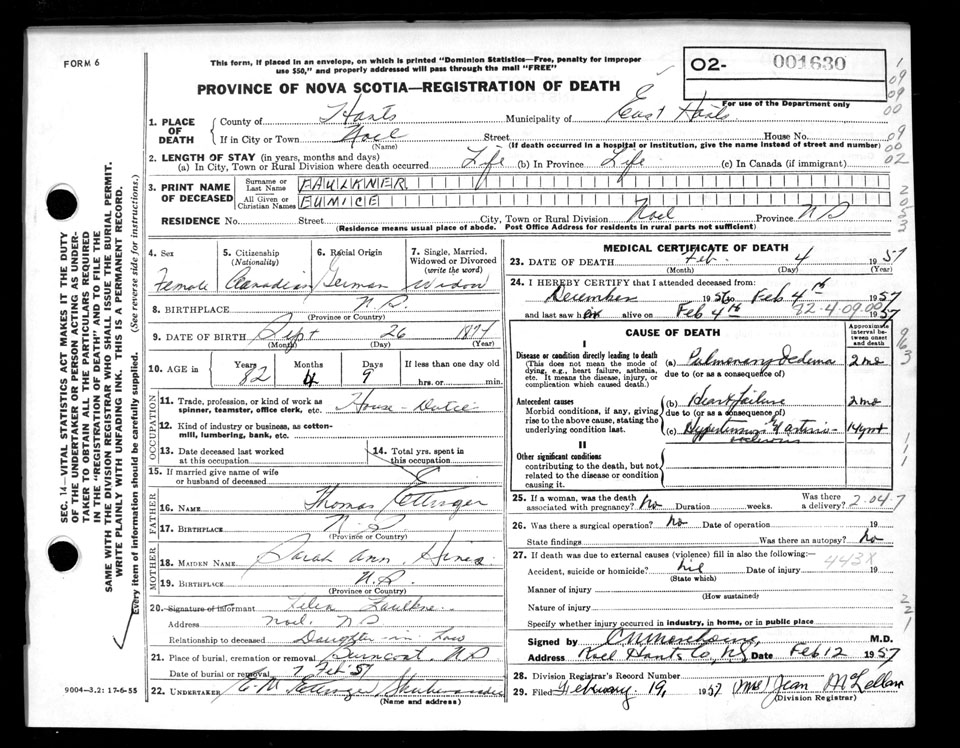 FORM 6
This form, if placed in an envelope, on which is printed "Dominion Statistics—Free, penalty for improper
use $50," and properly addressed will pass through the mail "FREE"
O2- 001630
PROVINCE OF NOVA SCOTIA—REGISTRATION OF DEATH
For use of the Department only
1. PLACE OF DEATH
County of Hants Municipality of East Hants
If in City or Town Noel Street House No.
(Name) (If death occurred in a hospital or institution, give the name instead of street and number)
2. LENGTH OF STAY (in years, months and days)
(a) In City, Town or Rural Division where death occurred Life (b) In Province Life (c) In Canada (if immigrant)
3. PRINT NAME OF DECEASED
Surname or Last Name FAULKNER
All Given or Christian Names EUMICE
RESIDENCE No. Street City, Town or Rural Division Noel Province NS
(Residence means usual place of abode. Post Office Address for residents in rural parts not sufficient)
4. Sex 5. Citizenship (Nationality) 6. Racial Origin 7. Single, Married, Widowed or Divorced (write the word)
Female Canadian German Widow
8. BIRTHPLACE N.S.
(Province or Country)
9. DATE OF BIRTH Sept 26 1874
(Month) (Day) (Year)
10. AGE in Years Months Days If less than one day old
82 4 9 hrs. or min.
OCCUPATION
11. Trade, profession, or kind of work as spinner, teamster, office clerk, etc. House-Duties
12. Kind of industry or business, as cotton-mill, lumbering, bank, etc.
13. Date deceased last worked at this occupation
14. Total yrs. spent in this occupation
15. If married give name of wife or husband of deceased
FATHER
16. NAME Thomas Ettinger
17. BIRTHPLACE N.S.
(Province or Country)
MOTHER
18. MAIDEN NAME Sarah Ann Hines
19. BIRTHPLACE N.S.
(Province or Country)
20. Signature of informant Faulkner
Address Noel, NS
Relationship to deceased Daughter-in Law
21. Place of burial, cremation or removal Burncoat, NS
Date of burial or removal 7 Feb '57
22. UNDERTAKER E.M. Ettinger Shubenacadie
(Name and address)
9004—3.2: 17-6-55
MEDICAL CERTIFICATE OF DEATH
23. DATE OF DEATH Feb. 4 1957
(Month) (Day) (Year)
24. I HEREBY CERTIFY that I attended deceased from:
December 1956 to Feb 4th 1957
and last saw her alive on Feb 4th 1957
92-4.09.00
CAUSE OF DEATH
Approximate interval between onset and death
I
Disease or condition directly leading to death
(This does not mean the mode of dying, e.g., heart failure, asthenia, etc. It means the disease, injury, or complication which caused death.)
(a) Pulmonary Oedema 2 mo
due to (or as a consequence of)
Antecedent causes
Morbid conditions, if any, giving rise to the above cause, stating the underlying condition last.
(b) Heart failure 2 mo
due to (or as a consequence of)
(c) Hypertension & arterio-sclerosis 14 yrs
II
Other significant conditions
contributing to the death, but not related to the disease or condition causing it.
25. If a woman, was the death associated with pregnancy? No Duration weeks. Was there a delivery?
2.04.7
26. Was there a surgical operation? No Date of operation 19
State findings Was there an autopsy? No
27. If death was due to external causes (violence) fill in also the following:—
443X
Accident, suicide or homicide? nil Date of injury 19
(State which)
Manner of injury
(How sustained)
Nature of injury
Specify whether injury occurred in industry, in home, or in public place
Signed by M.D.
Address Noel Hants Co, NS Date Feb 12 1957
28. Division Registrar's Record Number
29. Filed February 19, 1957 (Mrs) Jean McLellan
(Division Registrar)
SEC. 14—VITAL STATISTICS ACT MAKES IT THE DUTY
OF THE UNDERTAKER OR PERSON ACTING AS UNDER-
TAKER TO OBTAIN ALL THE PARTICULARS REQUIRED
IN THE "REGISTRATION OF DEATH" AND TO FILE THE
SAME WITH THE DIVISION REGISTRAR WHO SHALL ISSUE THE BURIAL PERMIT.
WRITE PLAINLY WITH UNFADING INK. THIS IS A PERMANENT RECORD.
Every item of information should be carefully supplied. (See reverse side for instructions.)